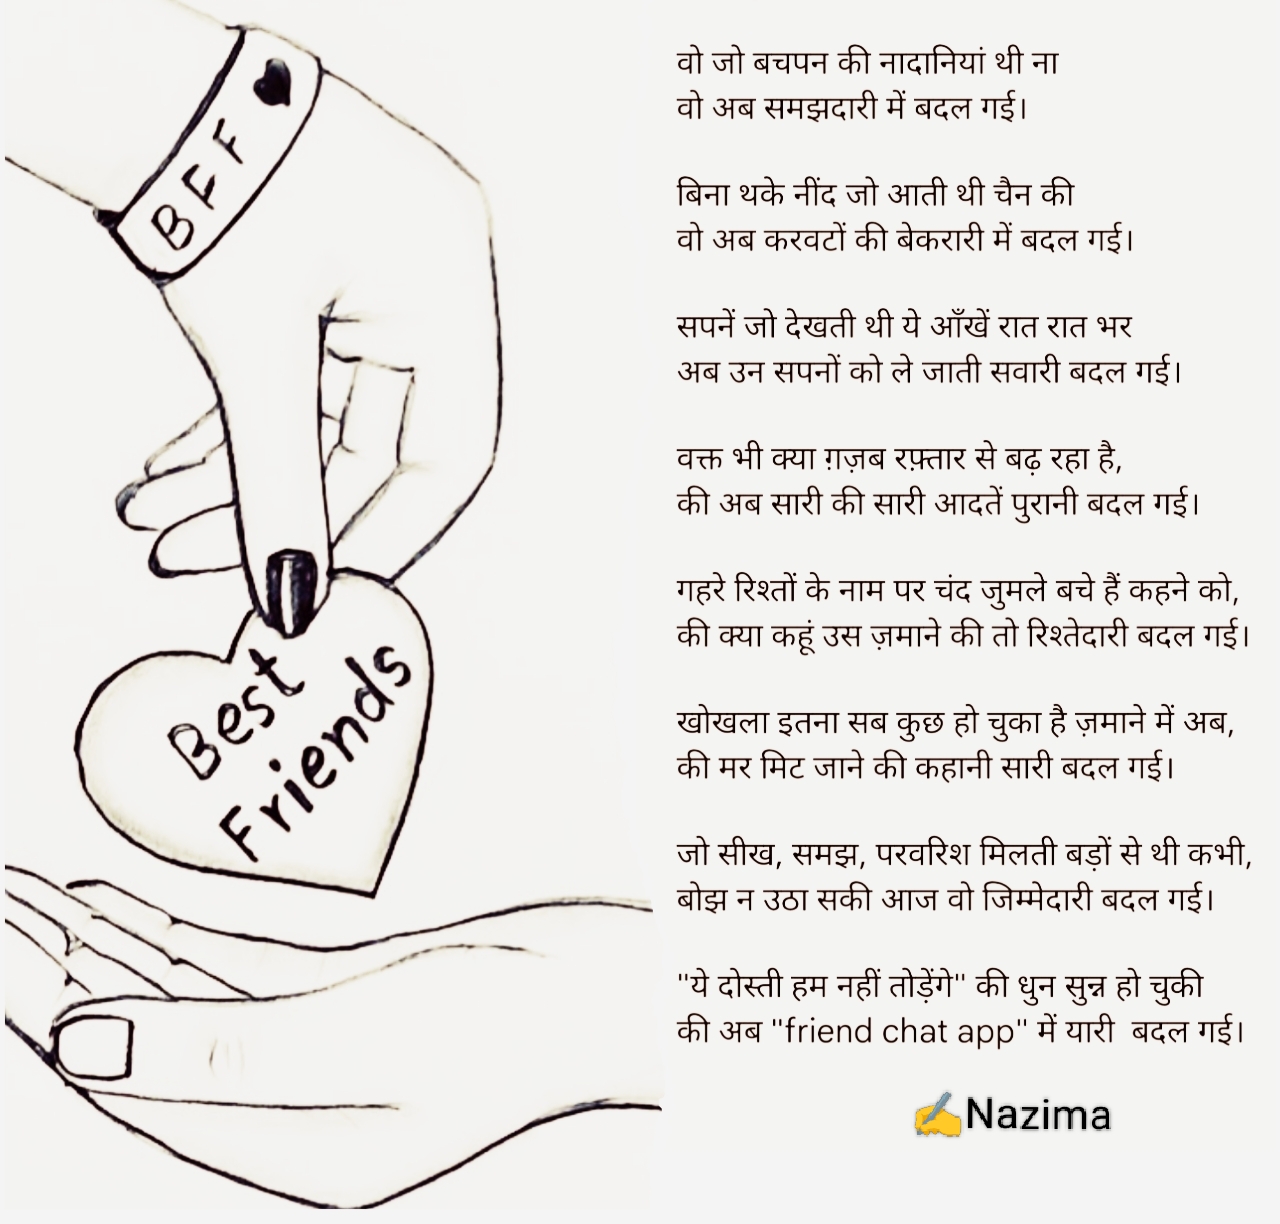 BFF
Best
Friends
वो जो बचपन की नादानियां थी ना
वो अब समझदारी में बदल गई।
बिना थके नींद जो आती थी चैन की
वो अब करवटों की बेकरारी में बदल गई।
सपनें जो देखती थी ये आँखें रात रात भर
अब उन सपनों को ले जाती सवारी बदल गई।
वक्त भी क्या ग़ज़ब रफ़्तार से बढ़ रहा है,
की अब सारी की सारी आदतें पुरानी बदल गई।
गहरे रिश्तों के नाम पर चंद जुमले बचे हैं कहने को,
की क्या कहूं उस ज़माने की तो रिश्तेदारी बदल गई।
खोखला इतना सब कुछ हो चुका है ज़माने में अब,
की मर मिट जाने की कहानी सारी बदल गई।
जो सीख, समझ, परवरिश मिलती बड़ों से थी कभी,
बोझ न उठा सकी आज वो जिम्मेदारी बदल गई।
"ये दोस्ती हम नहीं तोड़ेंगे" की धुन सुन्न हो चुकी
की अब "friend chat app" में यारी  बदल गई।
✍️Nazima